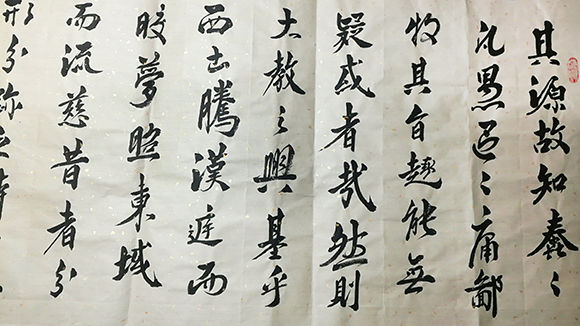 其源故知蠢〻
凡愚區〻庸鄙
投其旨趣能無
疑或者哉然則
大教之興基乎
西土騰漢庭而
皎夢照東域
而流慈昔者分
形分跡之時